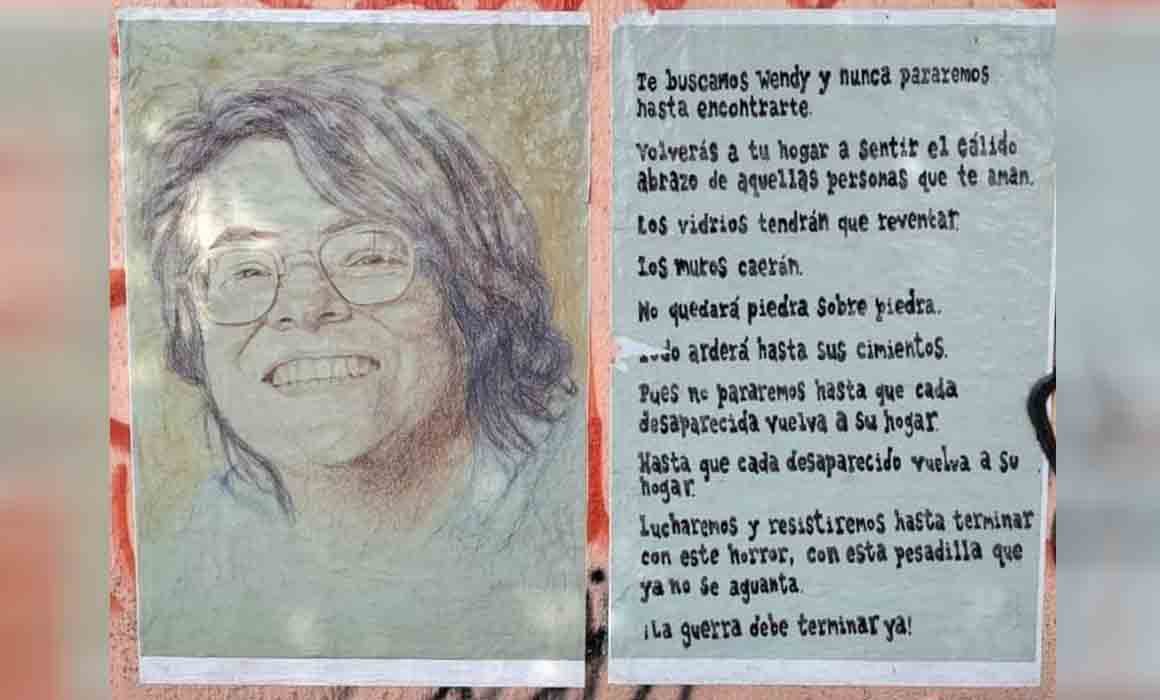 Te buscamos Wendy y nunca pararemos
hasta encontrarte.
Volverás a tu hogar a sentir el cálido
abrazo de aquellas personas que te aman.
Los vidrios tendrán que reventar.
Los muros caerán.
No quedará piedra sobre piedra.
arderá hasta sus cimientos.
Pues no pararemos hasta que cada
desaparecida vuelva a su hogar.
Hasta que cada desaparecido vuelva a su
hogar.
Lucharemos y resistiremos hasta terminar
con este horror, con esta pesadilla que
ya no se aguanta.
¡La guerra debe terminar ya!